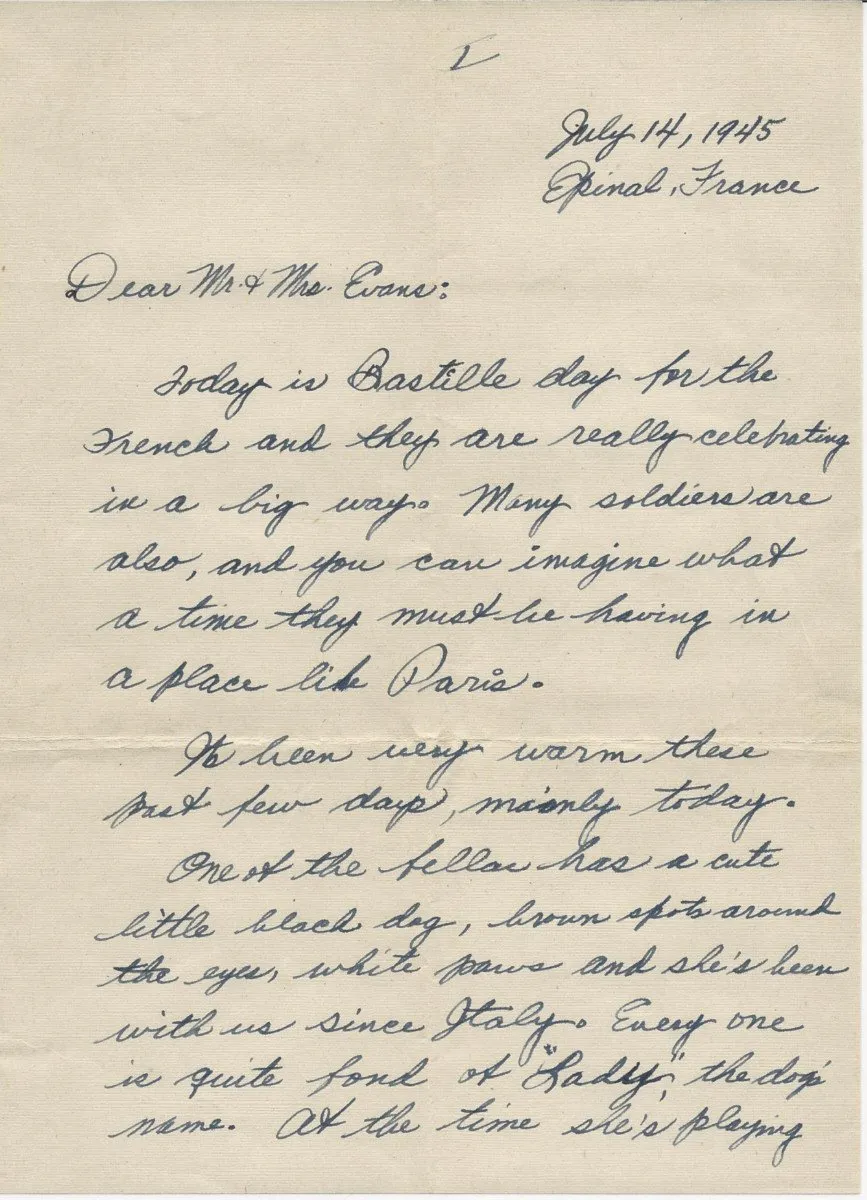 I
July 14, 1945
Epinal, France
Dear Mr. & Mrs. Evans:
Today is Bastille day for the
French and they are really celebrating
in a big way. Many soldiers are
also, and you can imagine what
a time they must be having in
a place like Paris.
It been very warm these
past few days, mainly today.
One of the fellas has a cute
little black dog, brown spots around
the eyes, white paws and she's been
with us since Italy. Every one
is quite fond of "Lady", the dog's
name. At the time she's playing